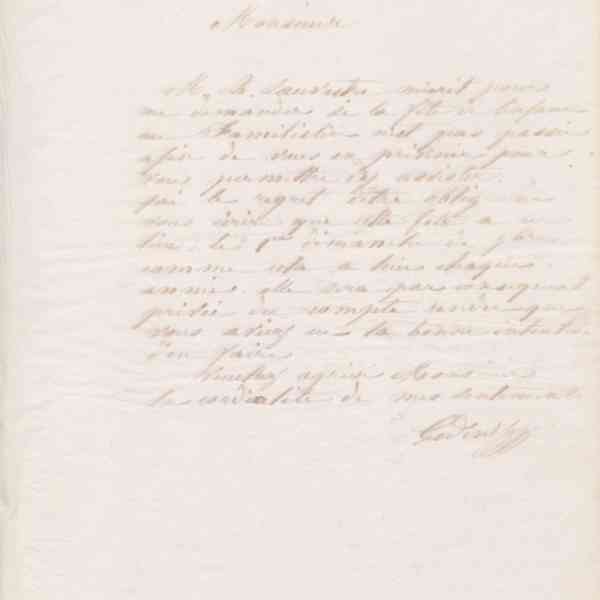 Monsieur
M. Ch. Sauvestre m'écrit pour
me demander si la fête de l'enfance
au Familistère n'est pas passée
afin de vous en prévenir pour
vous permettre d'y assister.
J'ai le regret d'être obligé de
vous écrire que cette fête a eu
lieu le 1er dimanche de 7bre
comme cela a lieu chaque
année. elle sera par conséquent
privée du compte rendu que
vous aviez eu la bonne intention
d'en faire
Veuillez agréer Monsieur
la cordialité de mes sentiments
Godin